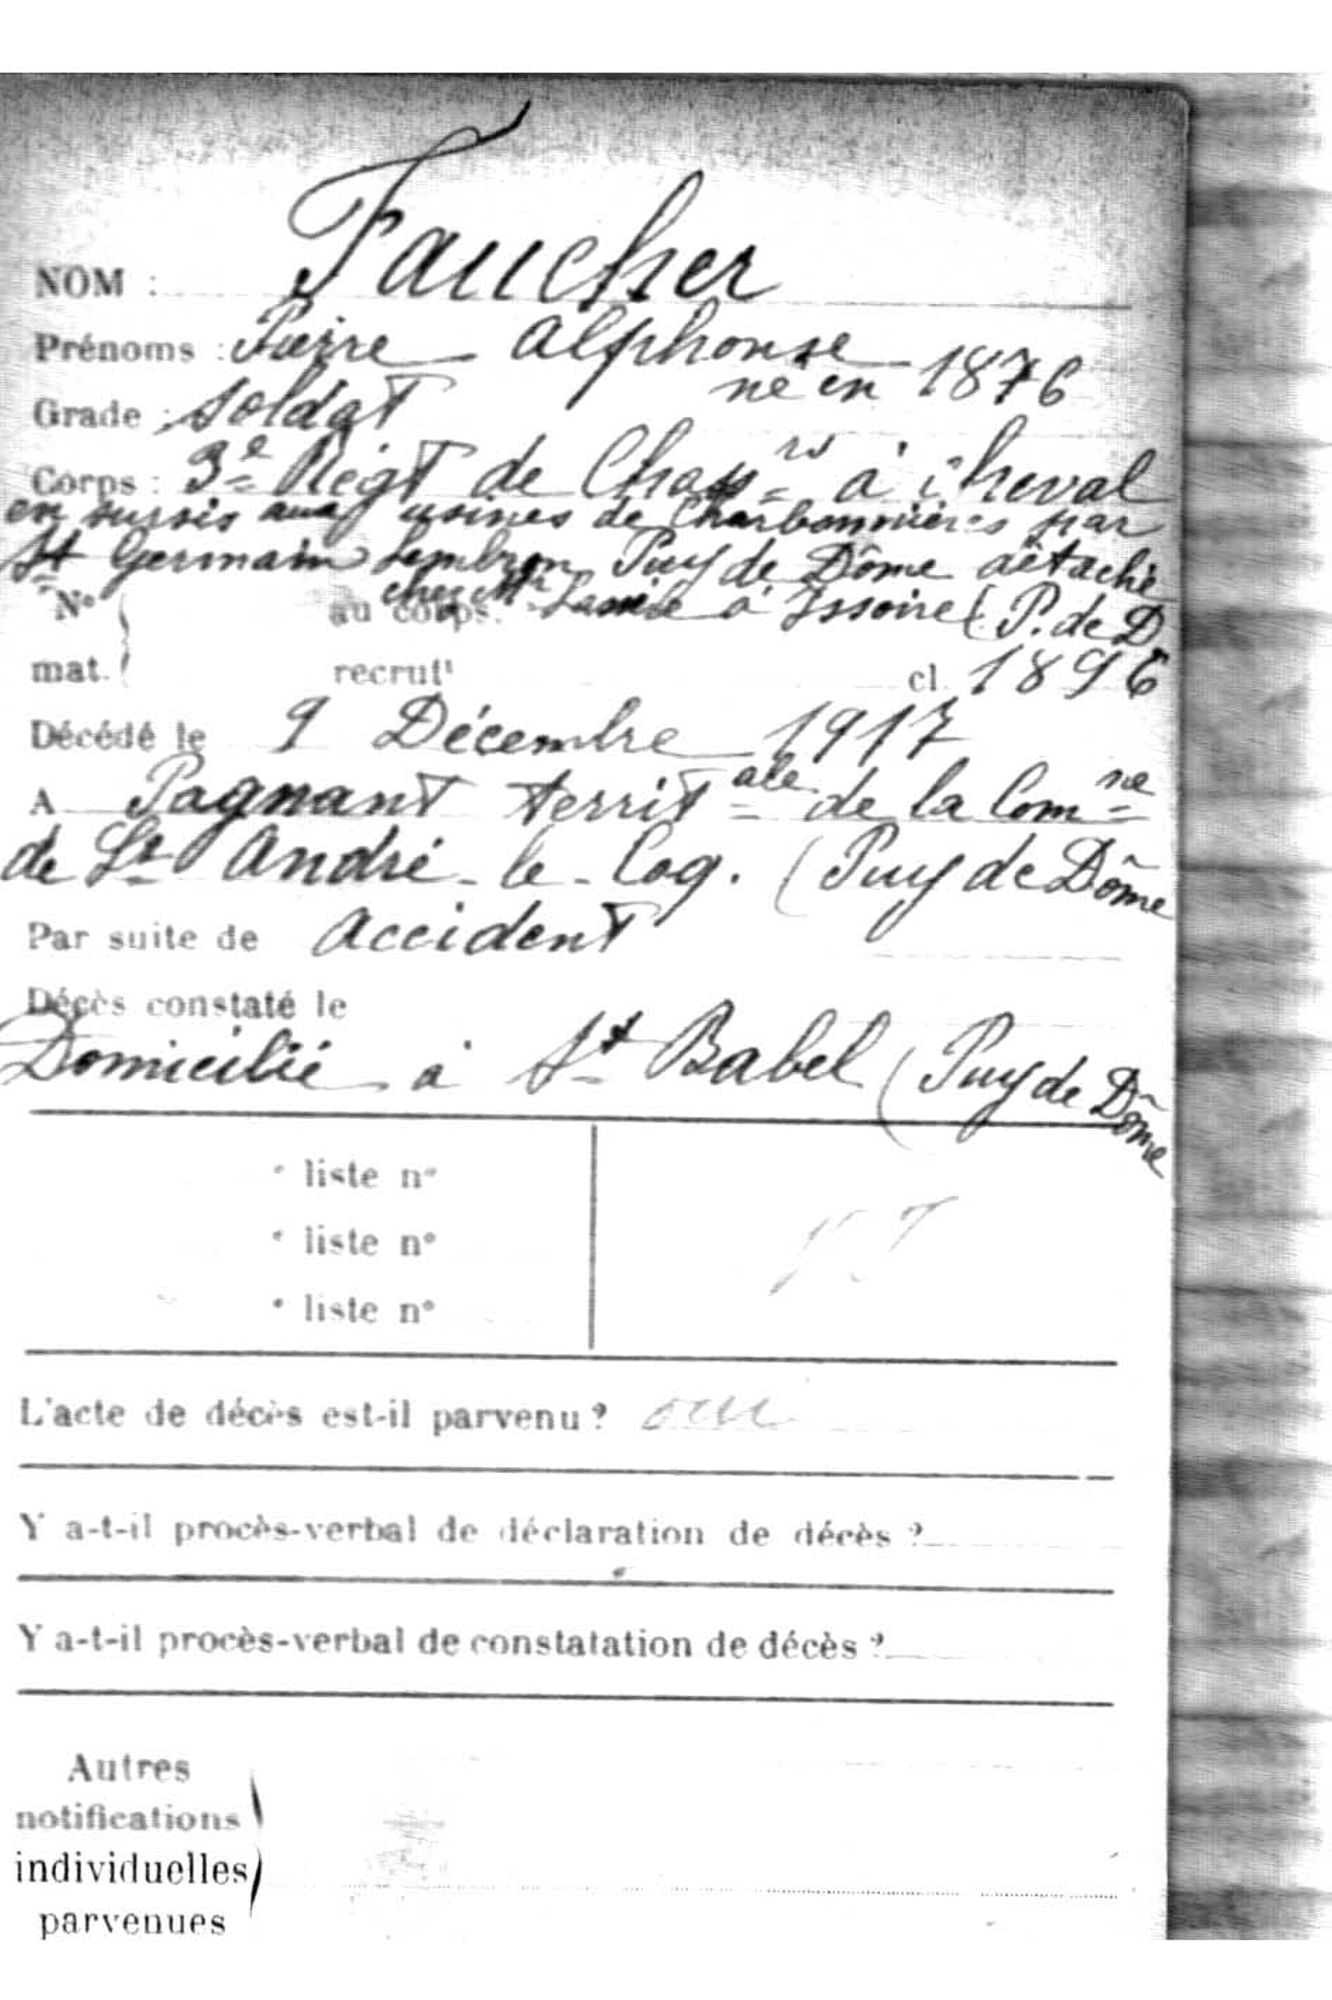 NOM : Faucher
Prénoms : Pierre Alphonse
né en 1876
Grade : Soldat
Corps : 3e Régt de Chassrs à cheval
en sursis aux usines de Charbonnières par
St Germain Lembron Puy de Dôme détaché
chez Mr à Issoire (P. de D.
No au corps.
mat. recrutt cl. 1896
Décédé le 9 Décembre 1917
A Pagnant territale de la Comne
de St André-le-Coq. (Puy de Dôme
Par suite de Accident
Décès constaté le
Domicilié à St Babel (Puy de Dôme
• liste n°
• liste n°
• liste n°
L'acte de décès est-il parvenu ? oui
Y a-t-il procès-verbal de déclaration de décès ?
Y a-t-il procès-verbal de constatation de décès ?
Autres
notifications
individuelles
parvenues